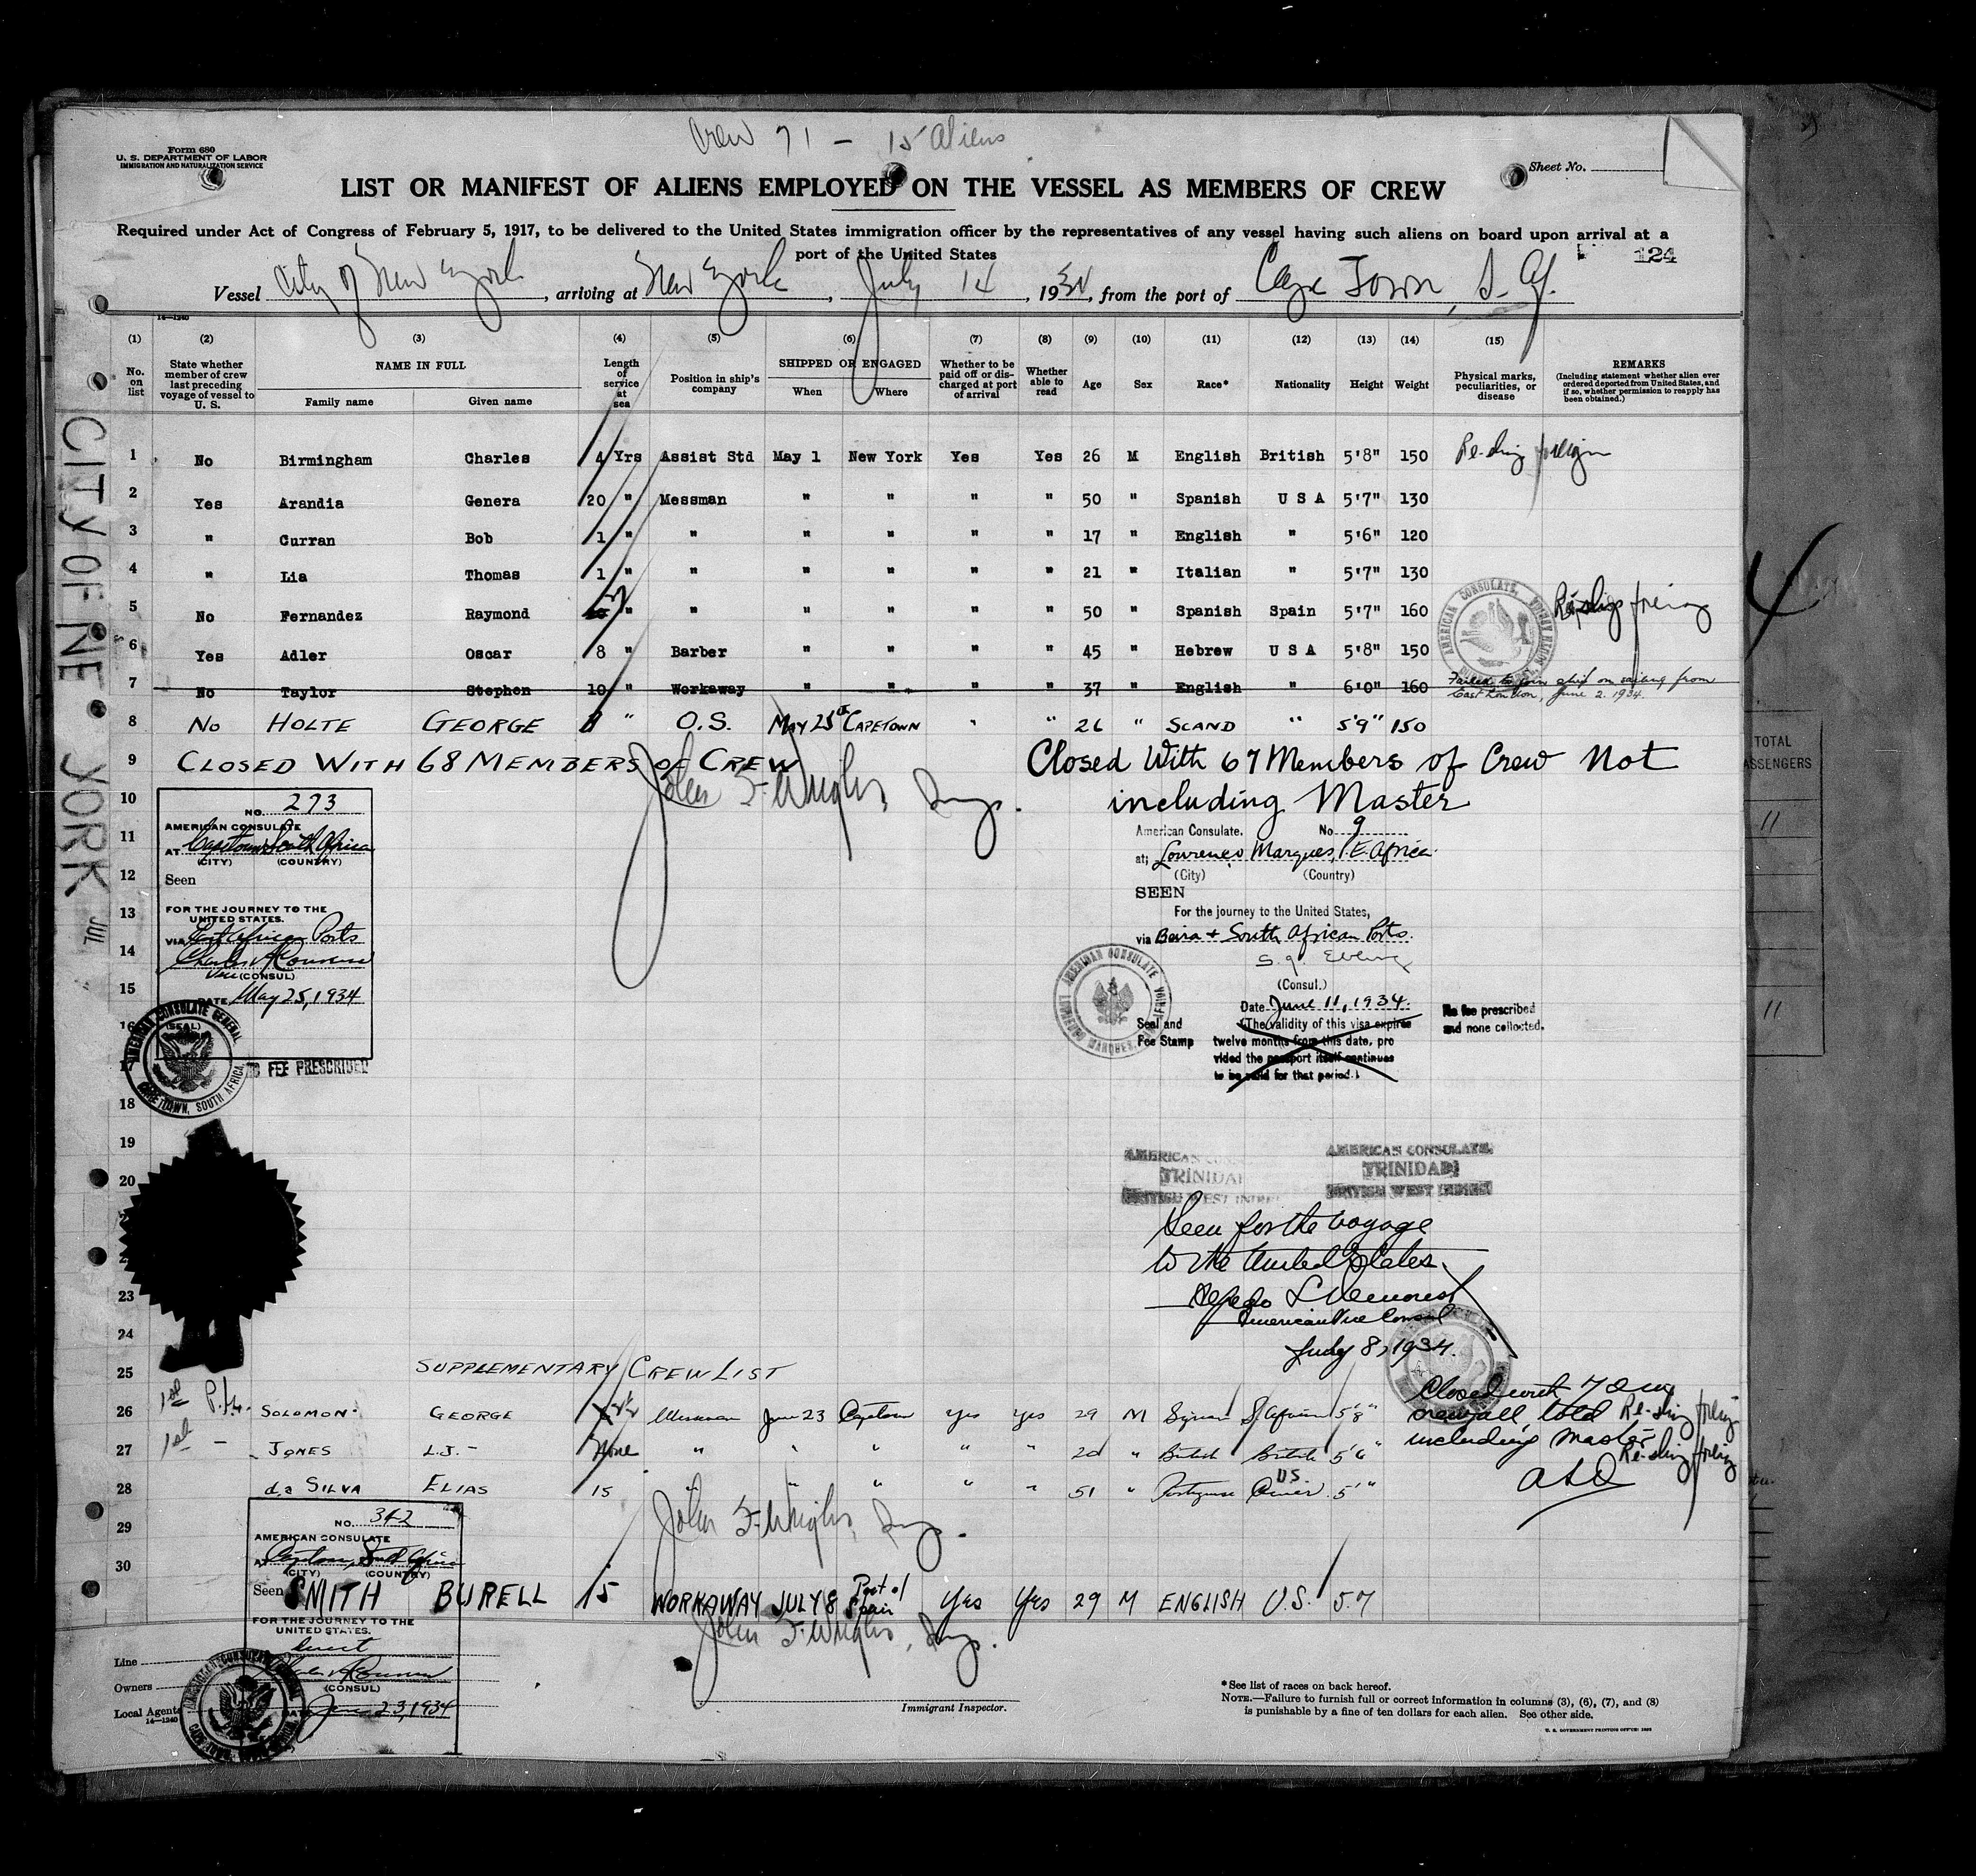 Crew 71 - 15 Aliens
Form 680
U. S. DEPARTMENT OF LABOR
IMMIGRATION AND NATURALIZATION SERVICE
Sheet No.
LIST OR MANIFEST OF ALIENS EMPLOYED ON THE VESSEL AS MEMBERS OF CREW
Required under Act of Congress of February 5, 1917, to be delivered to the United States immigration officer by the representatives of any vessel having such aliens on board upon arrival at a
port of the United States
124
Vessel City of New York, arriving at New York, July 14, 1934, from the port of Cape Town, S. Af.
14—1240
(1) (2) (3) (4) (5) (6) (7) (8) (9) (10) (11) (12) (13) (14) (15)
No. on list
State whether member of crew last preceding voyage of vessel to U. S.
NAME IN FULL
Family name Given name
Length of service at sea
Position in ship's company
SHIPPED OR ENGAGED
When Where
Whether to be paid off or discharged at port of arrival
Whether able to read
Age Sex Race* Nationality Height Weight
Physical marks, peculiarities, or disease
REMARKS
(Including statement whether alien ever ordered deported from United States, and if so, whether permission to reapply has been obtained.)
1 No Birmingham Charles 4 Yrs Assist Std May 1 New York Yes Yes 26 M English British 5'8" 150 Re-shipg foreign
2 Yes Arandia Genera 20 " Messman " " " " 50 " Spanish U S A 5'7" 130
3 " Curran Bob 1 " " " " " " 17 " English " 5'6" 120
4 " Lia Thomas 1 " " " " " " 21 " Italian " 5'7" 130
5 No Fernandez Raymond " " " " " " 50 " Spanish Spain 5'7" 160 Re-shipg foreign
6 Yes Adler Oscar 8 " Barber " " " " 45 " Hebrew U S A 5'8" 150
7 No Taylor Stephen 10 " Workaway " " " " 37 " English " 6'0" 160 Failed to join ship on sailing from
East London, June 2. 1934.
8 No HOLTE GEORGE " O.S. MAY 25th CAPETOWN " " 26 " SCAND " 5'9" 150
9 CLOSED WITH 68 MEMBERS OF CREW
Closed With 67 Members of Crew Not
including Master
CITY OF NEW YORK JUL
10
11
12
13
14
15
16
17
18
19
20
23
24
25
NO. 273
AMERICAN CONSULATE
AT Capetown South Africa
(CITY) (COUNTRY)
Seen
FOR THE JOURNEY TO THE
UNITED STATES.
VIA East African Ports
Vice (CONSUL)
DATE May 25, 1934
(SEAL)
AMERICAN CONSULATE GENERAL
CAPETOWN, SOUTH AFRICA
FEE PRESCRIBED
American Consulate. No 9
at; Lourenço Marques, P.E. Africa
(City) (Country)
SEEN
For the journey to the United States,
via Beira + South African Ports.
(Consul.)
Date June 11, 1934.
Seal and
Fee Stamp
(The validity of this visa expires
twelve months from this date, pro
vided the passport itself continues
to be valid for that period.)
No fee prescribed
and none collected.
AMERICAN CONSULATE
TRINIDAD
BRITISH WEST INDIES
AMERICAN CONSULATE,
TRINIDAD
BRITISH WEST INDIES
Seen for the voyage
to the United States.
American Vice Consul
July 8, 1934.
SUPPLEMENTARY CREW LIST
Closed with 70
crew all told
including Master
26 SOLOMON GEORGE Messman June 23 Capetown yes yes 29 M Syrian S. African 5'8" Re-shipg foreign
27 JONES L.J. - None " " " " " 20 " British British 5'6" Re-shipg foreign
28 da SILVA ELIAS 15 " " " " " 51 " Portuguese U.S. 5'
29
30
NO. 342
AMERICAN CONSULATE
AT Capetown, South Africa
(CITY) (COUNTRY)
Seen
SMITH BURELL 15 WORKAWAY JULY 8 Port of Spain Yes Yes 29 M ENGLISH U.S. 5.7
FOR THE JOURNEY TO THE
UNITED STATES.
Direct
(CONSUL)
DATE June 23, 1934
Line
Owners
Local Agents
14—1240
Immigrant Inspector.
*See list of races on back hereof.
NOTE.—Failure to furnish full or correct information in columns (3), (6), (7), and (8)
is punishable by a fine of ten dollars for each alien. See other side.
TOTAL
PASSENGERS
11
11
4